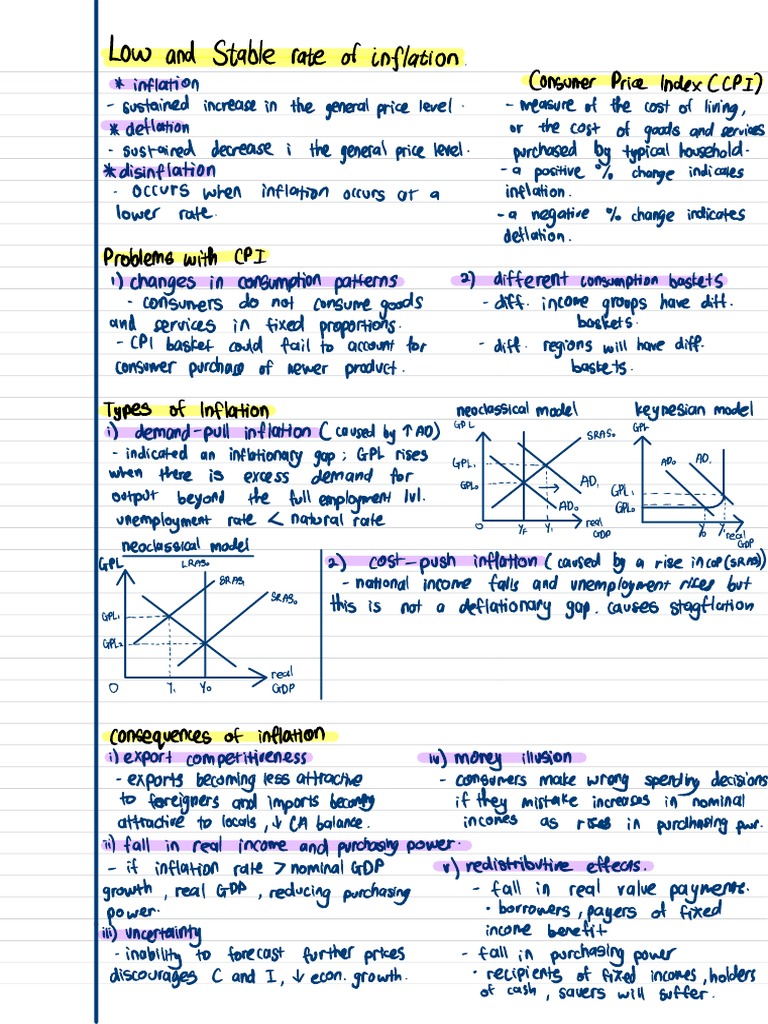 Low and Stable rate of inflation.
* inflation
- sustained increase in the general price level.
* deflation
- sustained decrease i the general price level.
* disinflation
- occurs when inflation occurs at a
lower rate.
Consumer Price Index (CPI)
- measure of the cost of living,
or the cost of goods and services
purchased by typical household.
- a positive % change indicates
inflation.
- a negative % change indicates
deflation.
Problems with CPI
1) changes in consumption patterns
- consumers do not consume goods
and services in fixed proportions.
- CPI basket could fail to account for
consumer purchase of newer product.
2) different consumption baskets
- diff. income groups have diff.
baskets.
- diff. regions will have diff.
baskets.
Types of Inflation
i) demand-pull inflation (caused by ↑AD)
- indicated an inflationary gap; GPL rises
when there is excess demand for
output beyond the full employment lvl.
unemployment rate < natural rate
neoclassical model
GPL
SRAS₀
GPL₁
GPL₀
AD₁
AD₀
Yf
Y₁
real
GDP
keynesian model
GPL
AD₀
AD₁
GPL₁
GPL₀
Y₀
Y₁
real
GDP
neoclassical model
GPL
LRAS₀
SRAS₁
SRAS₀
GPL₁
GPL₂
0
Y₁
Y₀
real
GDP
2) cost-push inflation (caused by a rise in cop (SRAS))
- national income falls and unemployment rises but
this is not a deflationary gap. causes stagflation
Consequences of inflation
i) export competitiveness
- exports becoming less attractive
to foreigners and imports becoming
attractive to locals, ↓ CA balance.
ii) fall in real income and purchasing power.
- if inflation rate > nominal GDP
growth, real GDP, reducing purchasing
power.
iii) uncertainty
- inability to forecast further prices
discourages C and I, ↓ econ. growth.
iv) money illusion
- consumers make wrong spending decisions
if they mistake increases in nominal
incomes as rises in purchasing pwr.
v) redistributive effects.
- fall in real value payments.
• borrowers, payers of fixed
income benefit
- fall in purchasing power
• recipients of fixed incomes, holders
of cash, savers will suffer.